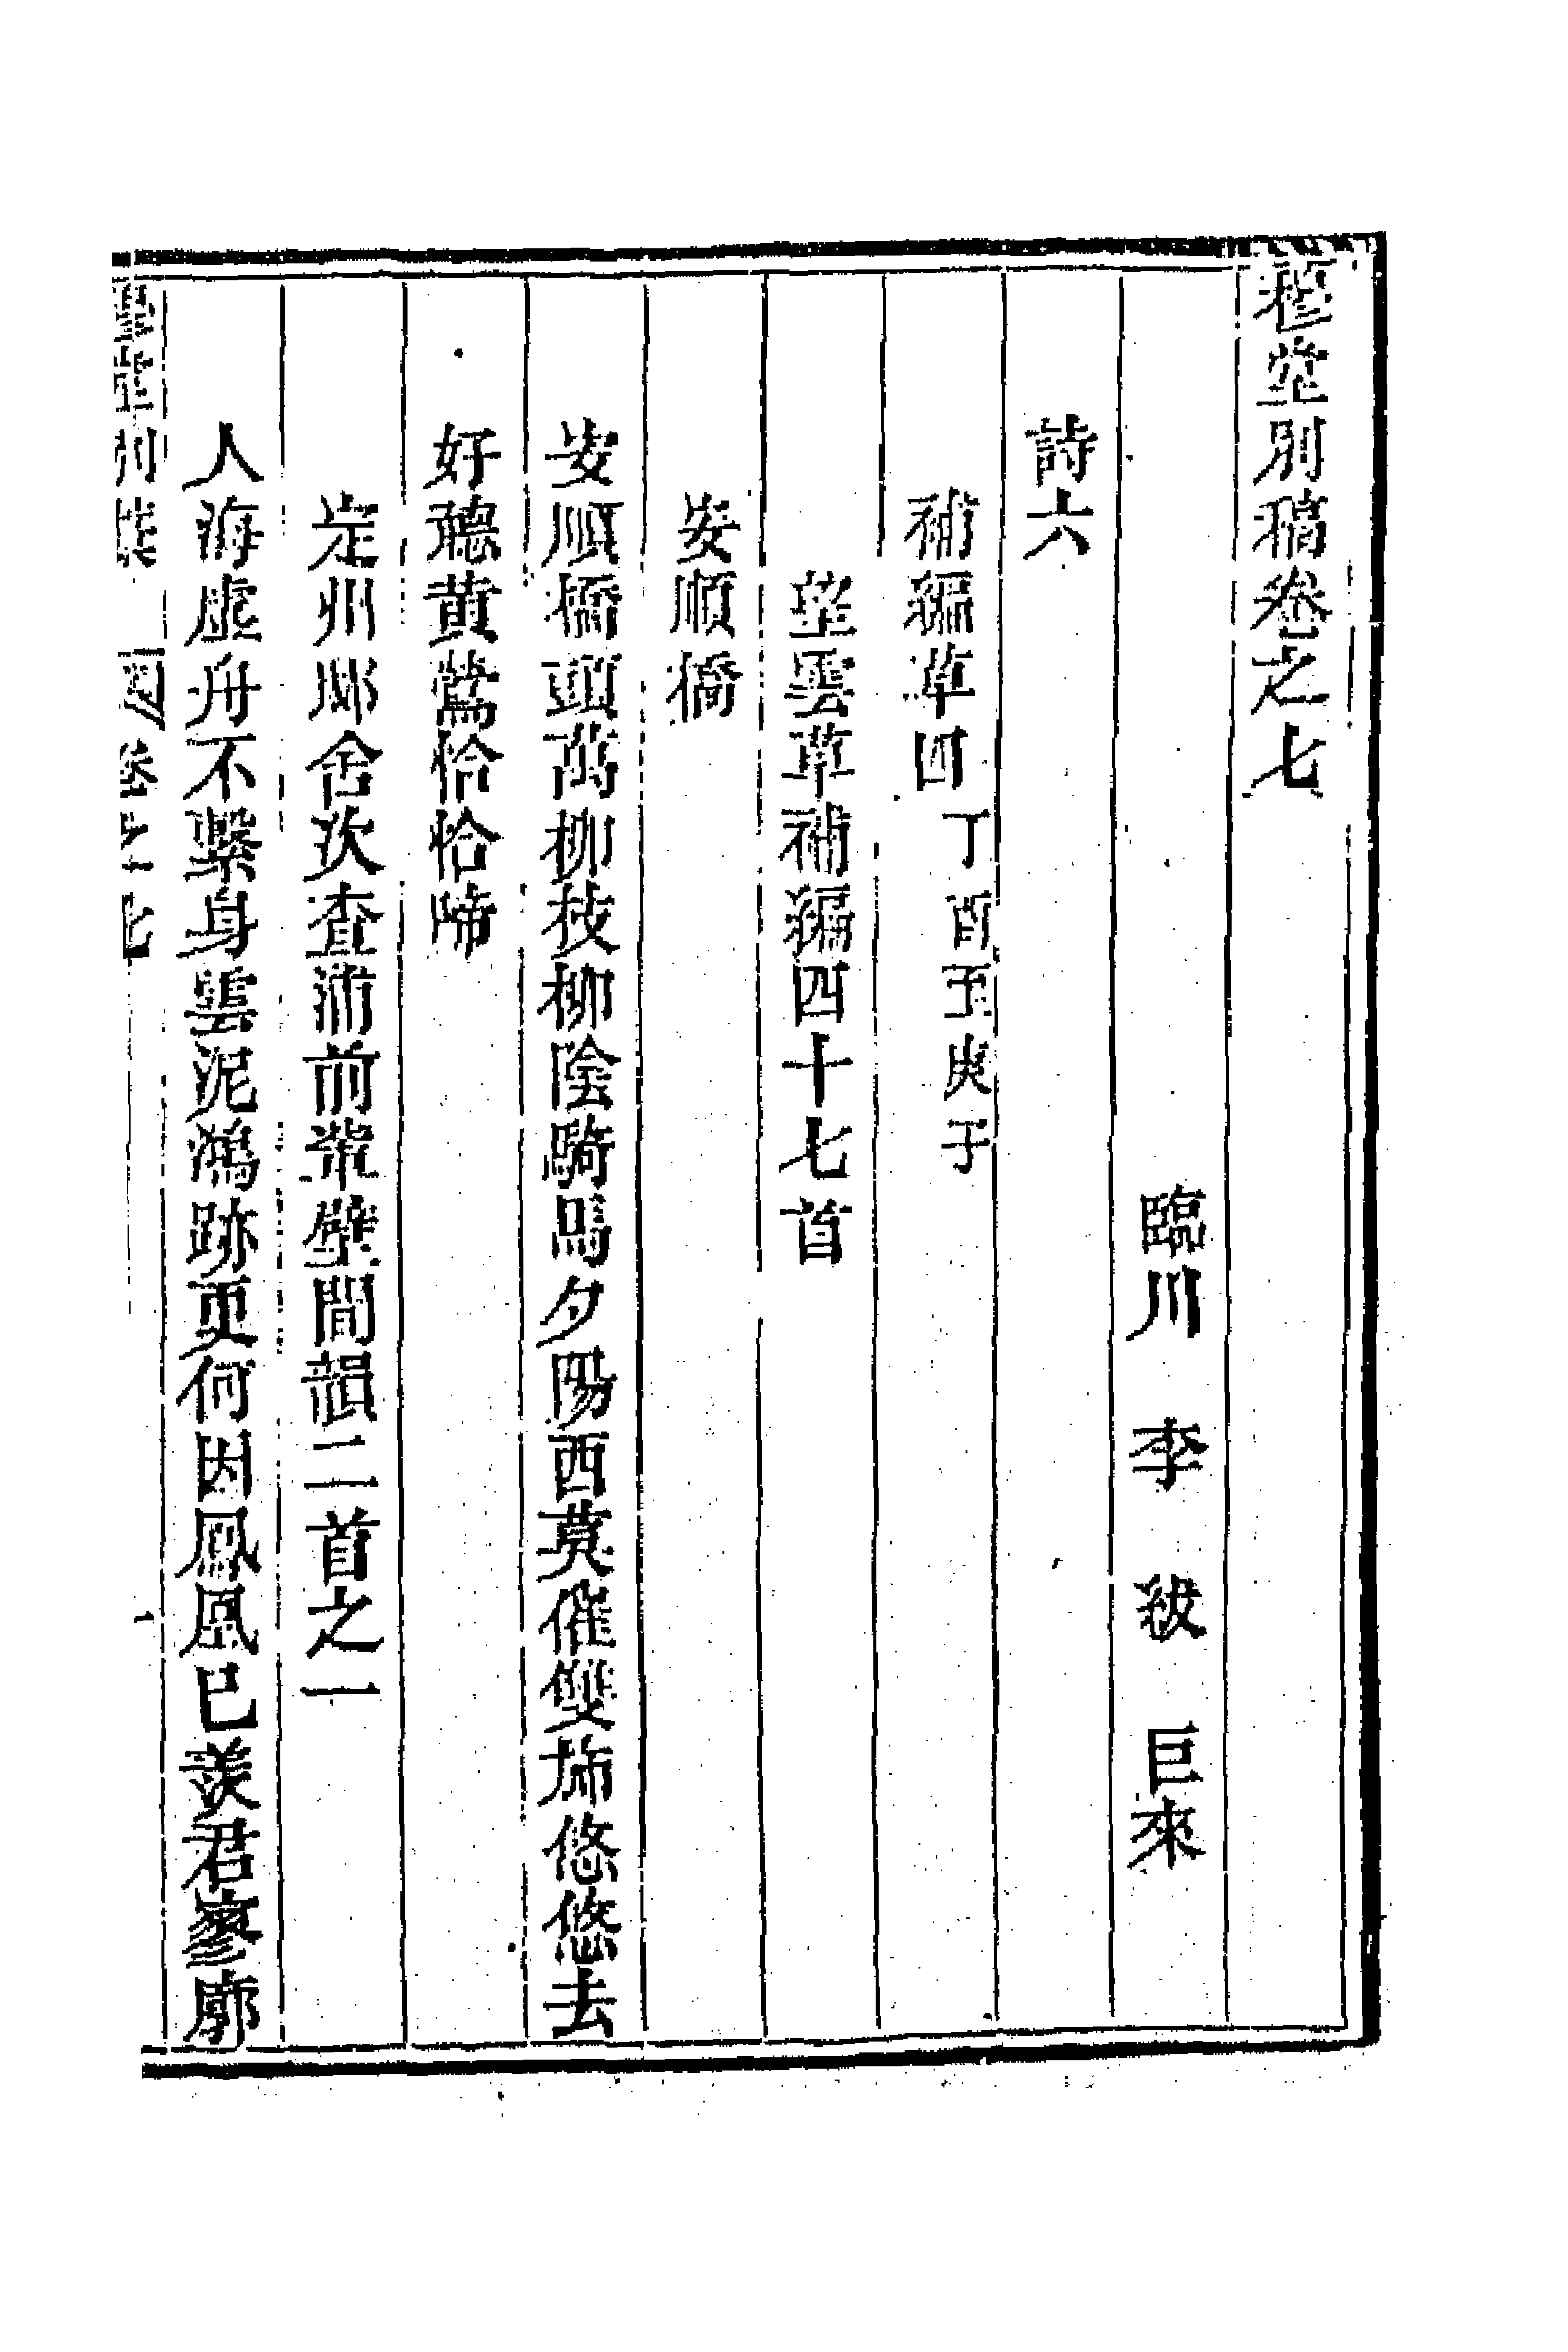 穆堂別稿卷之七
臨川 李 紱 巨來
詩六
補編草四丁酉至庚子
望雲草補編四十七首
安順橋
安順橋頭萬柳枝柳陰騎馬夕陽西莫催雙旆悠悠去
好聽黃鶯恰恰啼
定州邸舍次查浦前輩壁間韻二首之一
人海虛舟不繫身雲泥鴻跡更何因鳳凰已羨君寥廓
卷之七